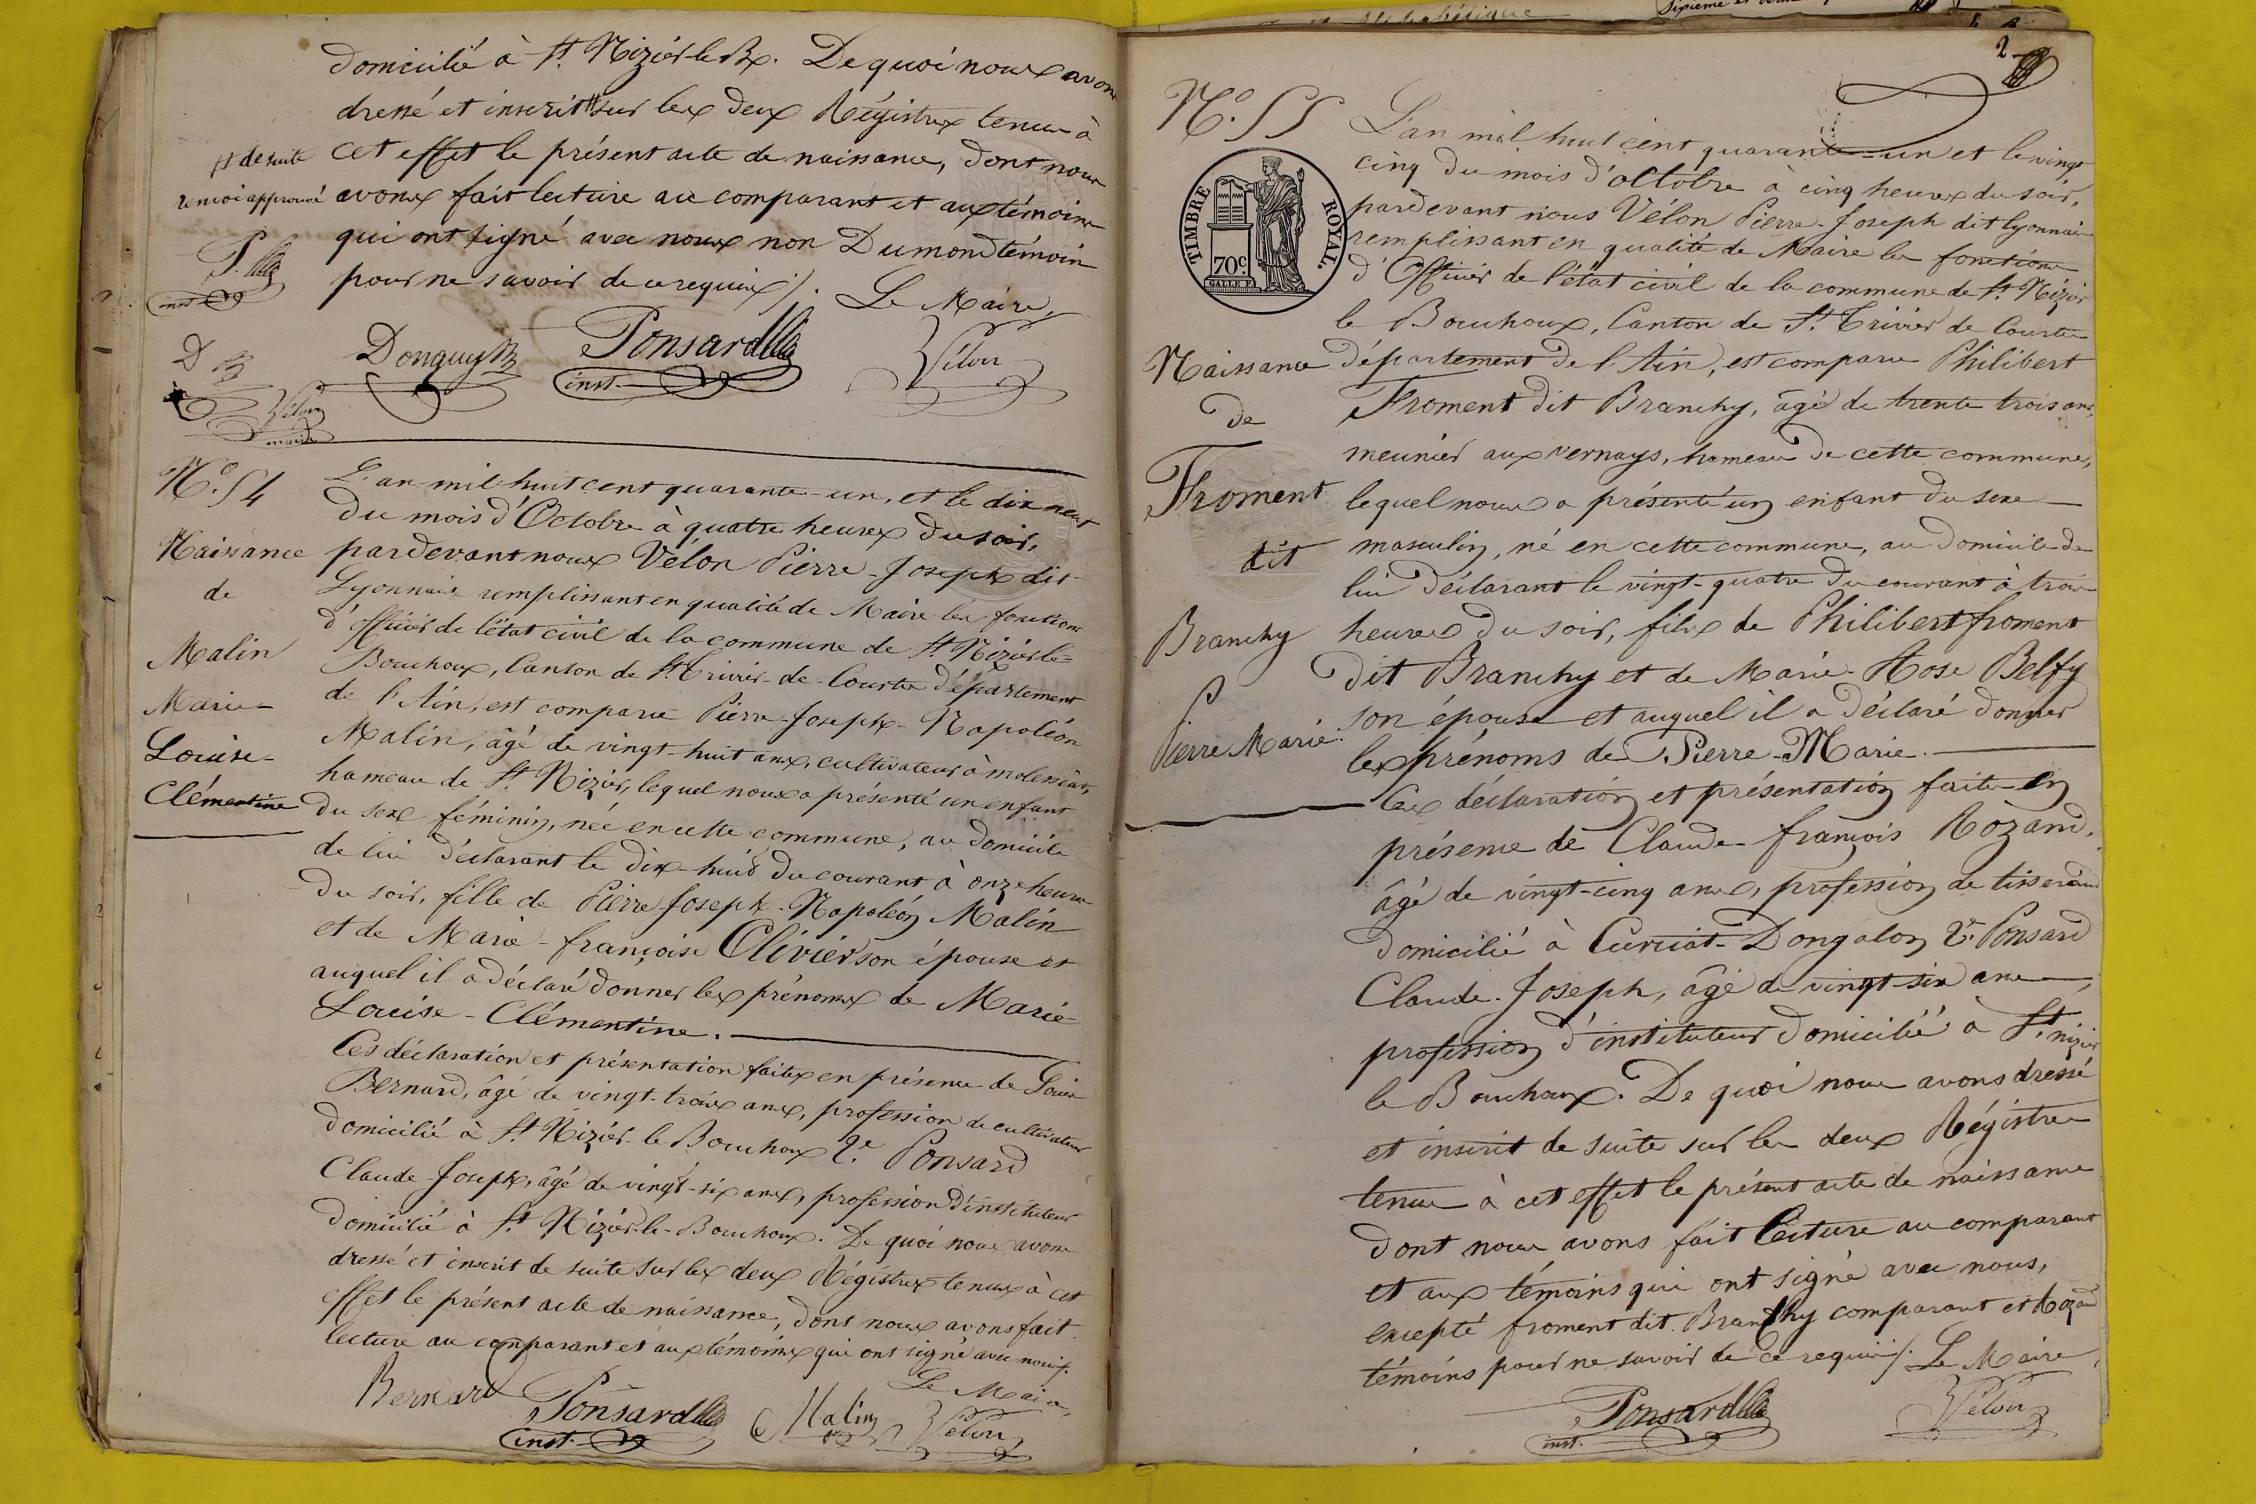 domicilié à St. Nizier-le-Bx. De quoi nous avons
dressé et inscrit # sur les deux Régistres tenus à
cet effet le présent acte de naissance, dont nous
avons fait lecture au comparant et aux témoins
qui ont signé avec nous non Dumond témoin
pour ne savoir de ce requis ./.
Le Maire,
# de suite
renvoi approuvé
P.
inst
D B
Vélon
maire
Donguy
Ponsard
inst.
Vélon
N.o 54
Naissance
de
Malin
Marie-
Louise-
Clémentine
L'an mil huit cent quarante-un, et le dix neuf
du mois d'Octobre à quatre heures du soir,
pardevant nous Vélon Pierre-Joseph dit
Lyonnais remplissant en qualité de Maire les fonctions
d'officier de l'état civil de la commune de St. Nizier-le-
Bouchoux, Canton de St. Trivier-de-Courtes département
de l'Ain, est comparu Pierre-Joseph-Napoléon
Malin, âgé de vingt-huit ans, cultivateur à molessiat,
hameau de St. Nizier, lequel nous a présenté un enfant
du sexe féminin, née en cette commune, au domicile
de lui déclarant le dix-huit du courant à onze heures
du soir, fille de Pierre Joseph-Napoléon Malin
et de Marie-françoise Clivier son épouse et
auquel il a déclaré donner les prénoms de Marie-
Louise-Clémentine.
Ces déclaration et présentation faites en présence de Louis
Bernard, âgé de vingt-trois ans, profession de cultivateur
domicilié à St. Nizier-le-Bouchoux 2.e Ponsard
Claude-Joseph, âgé de vingt-six ans, profession d'instituteur
domicilié à St. Nizier-le-Bouchoux. De quoi nous avons
dressé et inscrit de suite sur les deux Régistres tenus à cet
effet le présent acte de naissance, dont nous avons fait
lecture au comparant et aux témoins qui ont signé avec nous ./.
Le Maire,
Bernard
Ponsard
inst.
Malin
Vélon
2
N.o 55
TIMBRE ROYAL.
70c.
GALLE F.
Naissance
de
Froment
dit
Branchy
Pierre Marie.
L'an mil huit cent quarante-un et le vingt
cinq du mois d'octobre à cinq heures du soir,
pardevant nous Vélon Pierre-Joseph dit Lyonnais
remplissant en qualité de Maire les fonctions
d'Officier de l'état civil de la commune de St. Nizier
le Bouchoux, Canton de St. Trivier de Courtes
département de l'Ain, est comparu Philibert
Froment dit Branchy, âgé de trente trois ans,
meunier aux vernays, hameau de cette commune,
lequel nous a présenté un enfant du sexe
masculin, né en cette commune, au domicile de
lui déclarant le vingt-quatre du courant à trois
heures du soir, fils de Philibert froment
dit Branchy et de Marie-Rose Belfy
son épouse et auquel il a déclaré donner
les prénoms de Pierre-Marie.
Ces déclaration et présentation faite en
présence de Claude-françois Rozand,
âgé de vingt-cinq ans, profession de tisserand
domicilié à Curciat-Dongalon 2.e Ponsard
Claude-Joseph, âgé de vingt-six ans,
profession d'instituteur domicilié à St. nizier
le Bouchoux. De quoi nous avons dressé
et inscrit de suite sur les deux Régistres
tenus à cet effet le présent acte de naissance
dont nous avons fait lecture au comparant
et aux témoins qui ont signé avec nous,
excepté froment dit Branchy comparant et Rozand
témoins pour ne savoir de ce requis ./. Le Maire,
Ponsard
inst.
Vélon